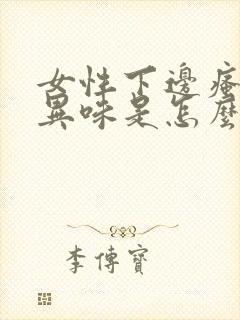 女性下邊瘙
異味是怎麼
李傳寶